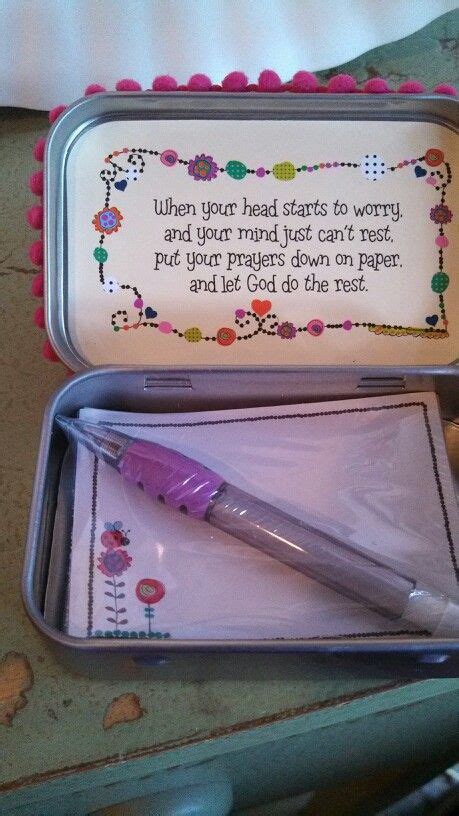 When your head starts to worry,
and your mind just can't rest,
put your prayers down on paper,
and let God do the rest.